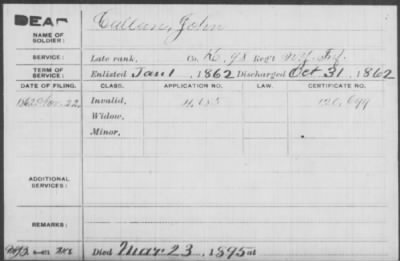 DEAD
NAME OF SOLDIER: Cullan, John
SERVICE: Late rank, Co. K, 98 Reg't N.Y. Inf.
TERM OF SERVICE: Enlisted Jan 1, 1862 Discharged Oct 31, 1862
DATE OF FILING. CLASS. APPLICATION NO. LAW. CERTIFICATE NO.
1862 Nov. 22, Invalid,
Widow,
Minor,
ADDITIONAL SERVICES:
REMARKS:
Died Mar 23, 1895 at